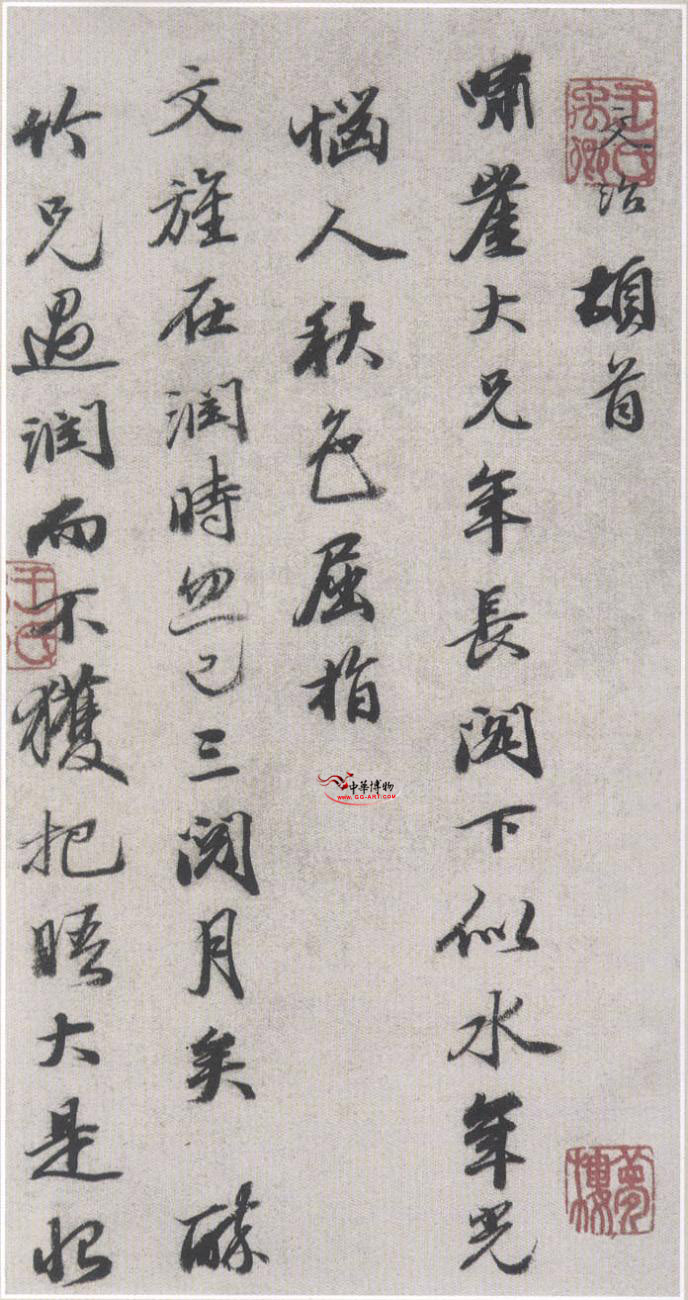 文治頓首
嘯崖大兄年長閣下似水年光
惱人秋色屈指
文旌在潤時忽已三閱月矣 酴
竹兄過潤而不獲把晤大是恨
王氏禹卿
夢樓
王氏
中華博物
www.gg-art.com